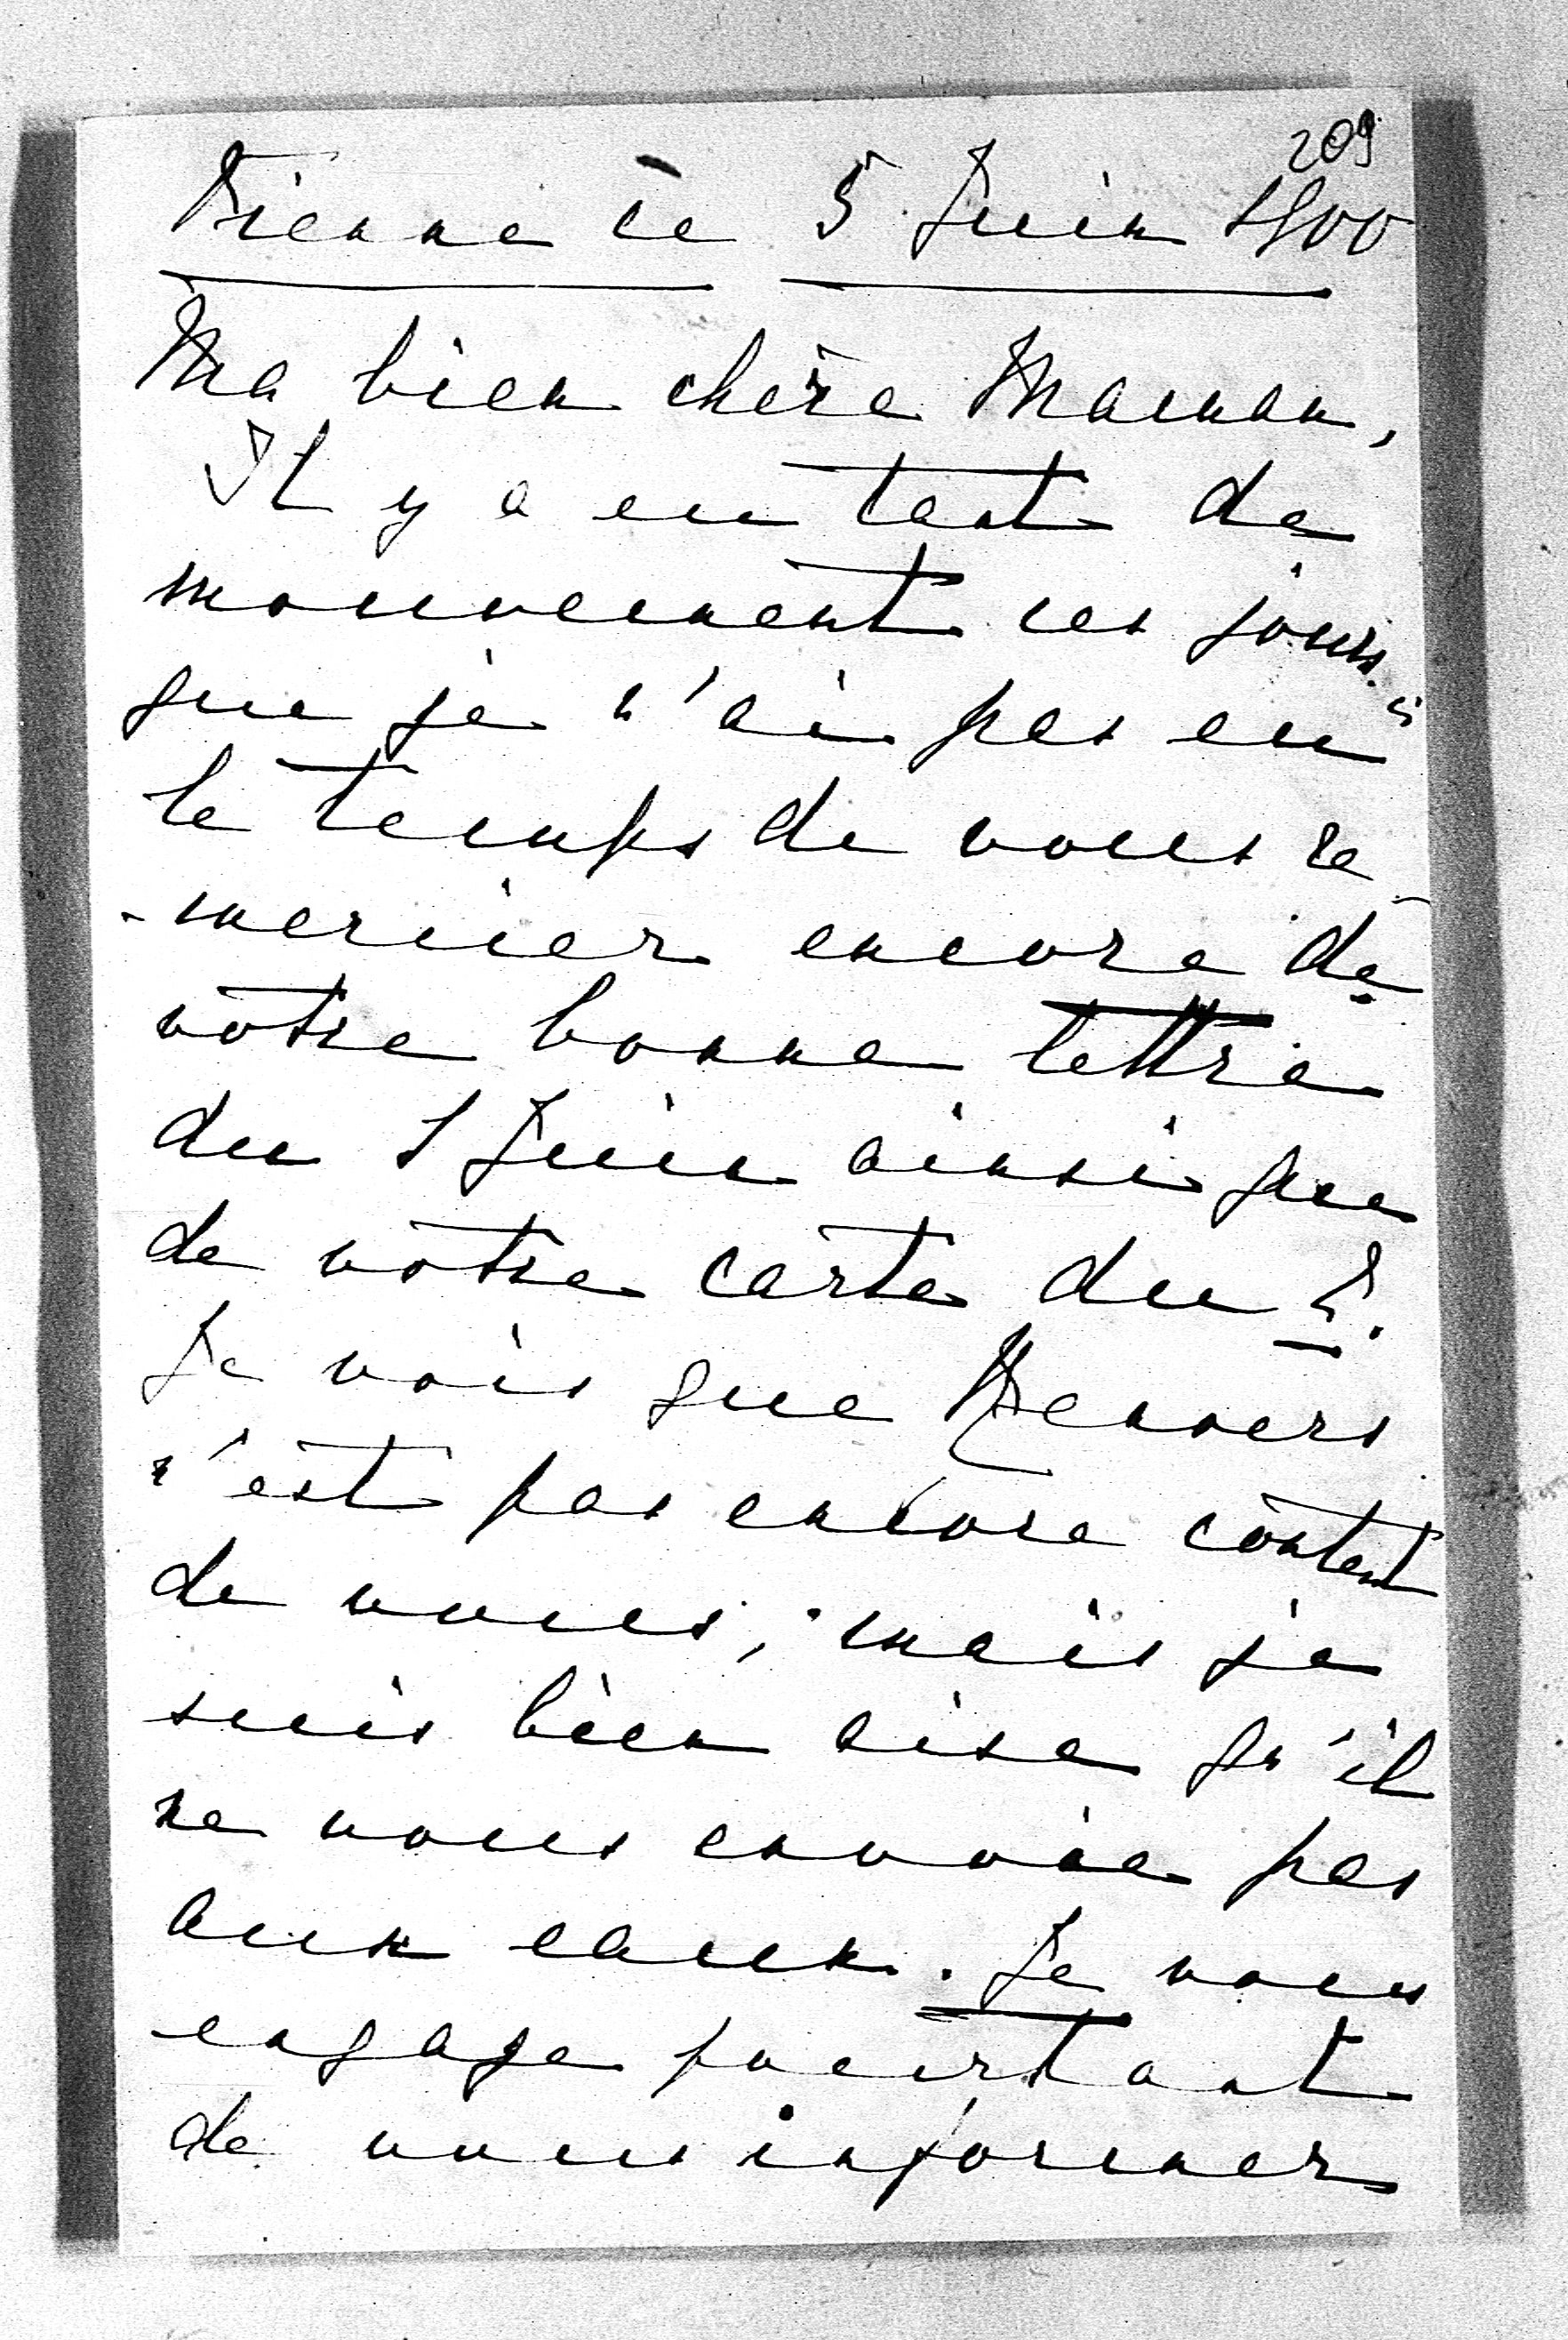 209
Vienne ce 5 Juin 1900
Ma bien chère Maman,
Il y a eu tant de
mouvement ces jours-ci
que je n'ai pas eu
le temps de vous re-
-mercier encore de
votre bonne lettre
du 1 Juin ainsi que
de votre carte du
Je vois que
n'est pas encore content
de vous, mais je
suis bien aise qu'il
ne vous envoie pas
aux eaux. Je vous
engage pourtant
de vous informer